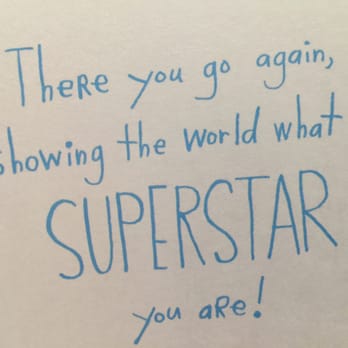 There you go again,
showing the world what
SUPERSTAR
you are!